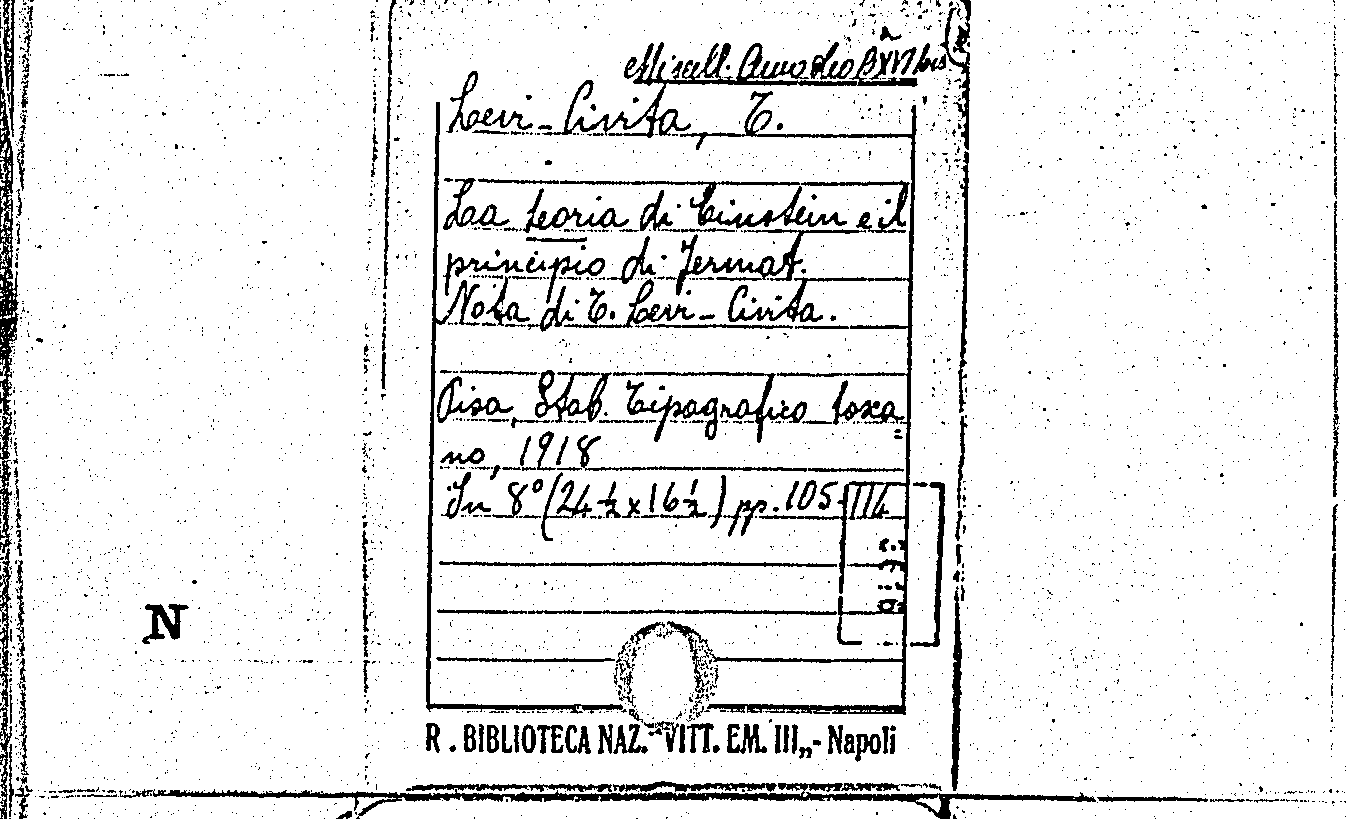 Miscell. Amodeo B XVI bis
Levi-Civita, T.
La teoria di Einstein e il
principio di Fermat.
Nota di T. Levi-Civita.
Pisa, Stab. Tipografico tosca
no, 1918
In 8° (24 ½ x 16 ½) pp. 105-114
N
R. BIBLIOTECA NAZ. "VITT. EM. III„- Napoli